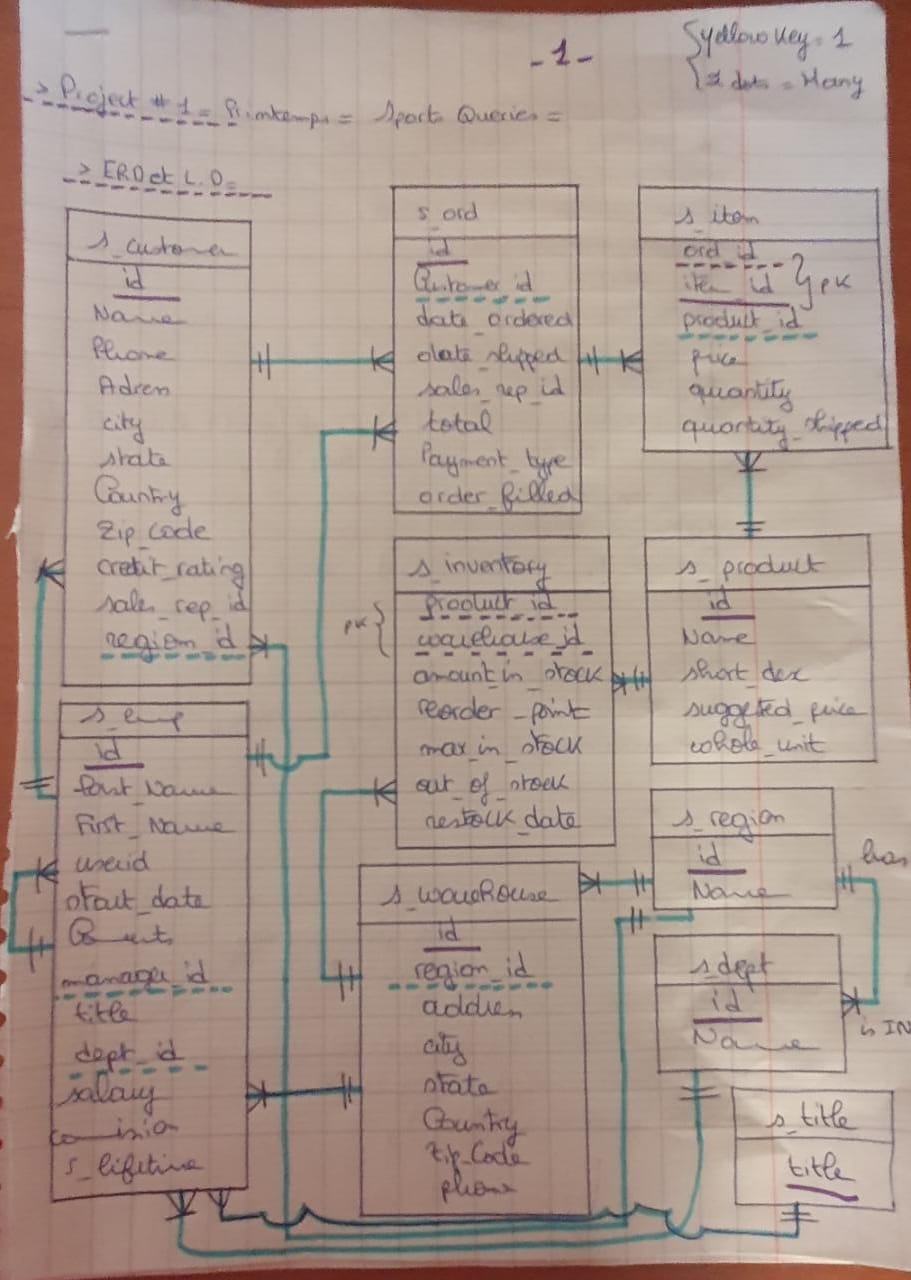 - 1 -
yellow key = 1
= Many
-> Project # 1 = Printemps = Sports Queries =
-> ERD et L.D =
s_customer
id
Name
Phone
Adress
city
state
Country
Zip_Code
credit_rating
sales_rep_id
region_id
s_ord
id
Customer_id
date_ordered
date_shipped
sales_rep_id
total
Payment_type
order_filled
s_item
ord_id
item_id
} PK
product_id
price
quantity
quantity_shipped
s_inventory
PK {
product_id
warehouse_id
amount_in_stock
reorder_point
max_in_stock
out_of_stock
restock_date
s_product
id
Name
short_desc
suggested_price
whole_unit
s_emp
id
Last_Name
First_Name
userid
start_date
manager_id
title
dept_id
salary
s_warehouse
id
region_id
address
city
state
Country
Zip_Code
phone
s_region
id
Name
has
s_dept
id
Name
is IN
s_title
title